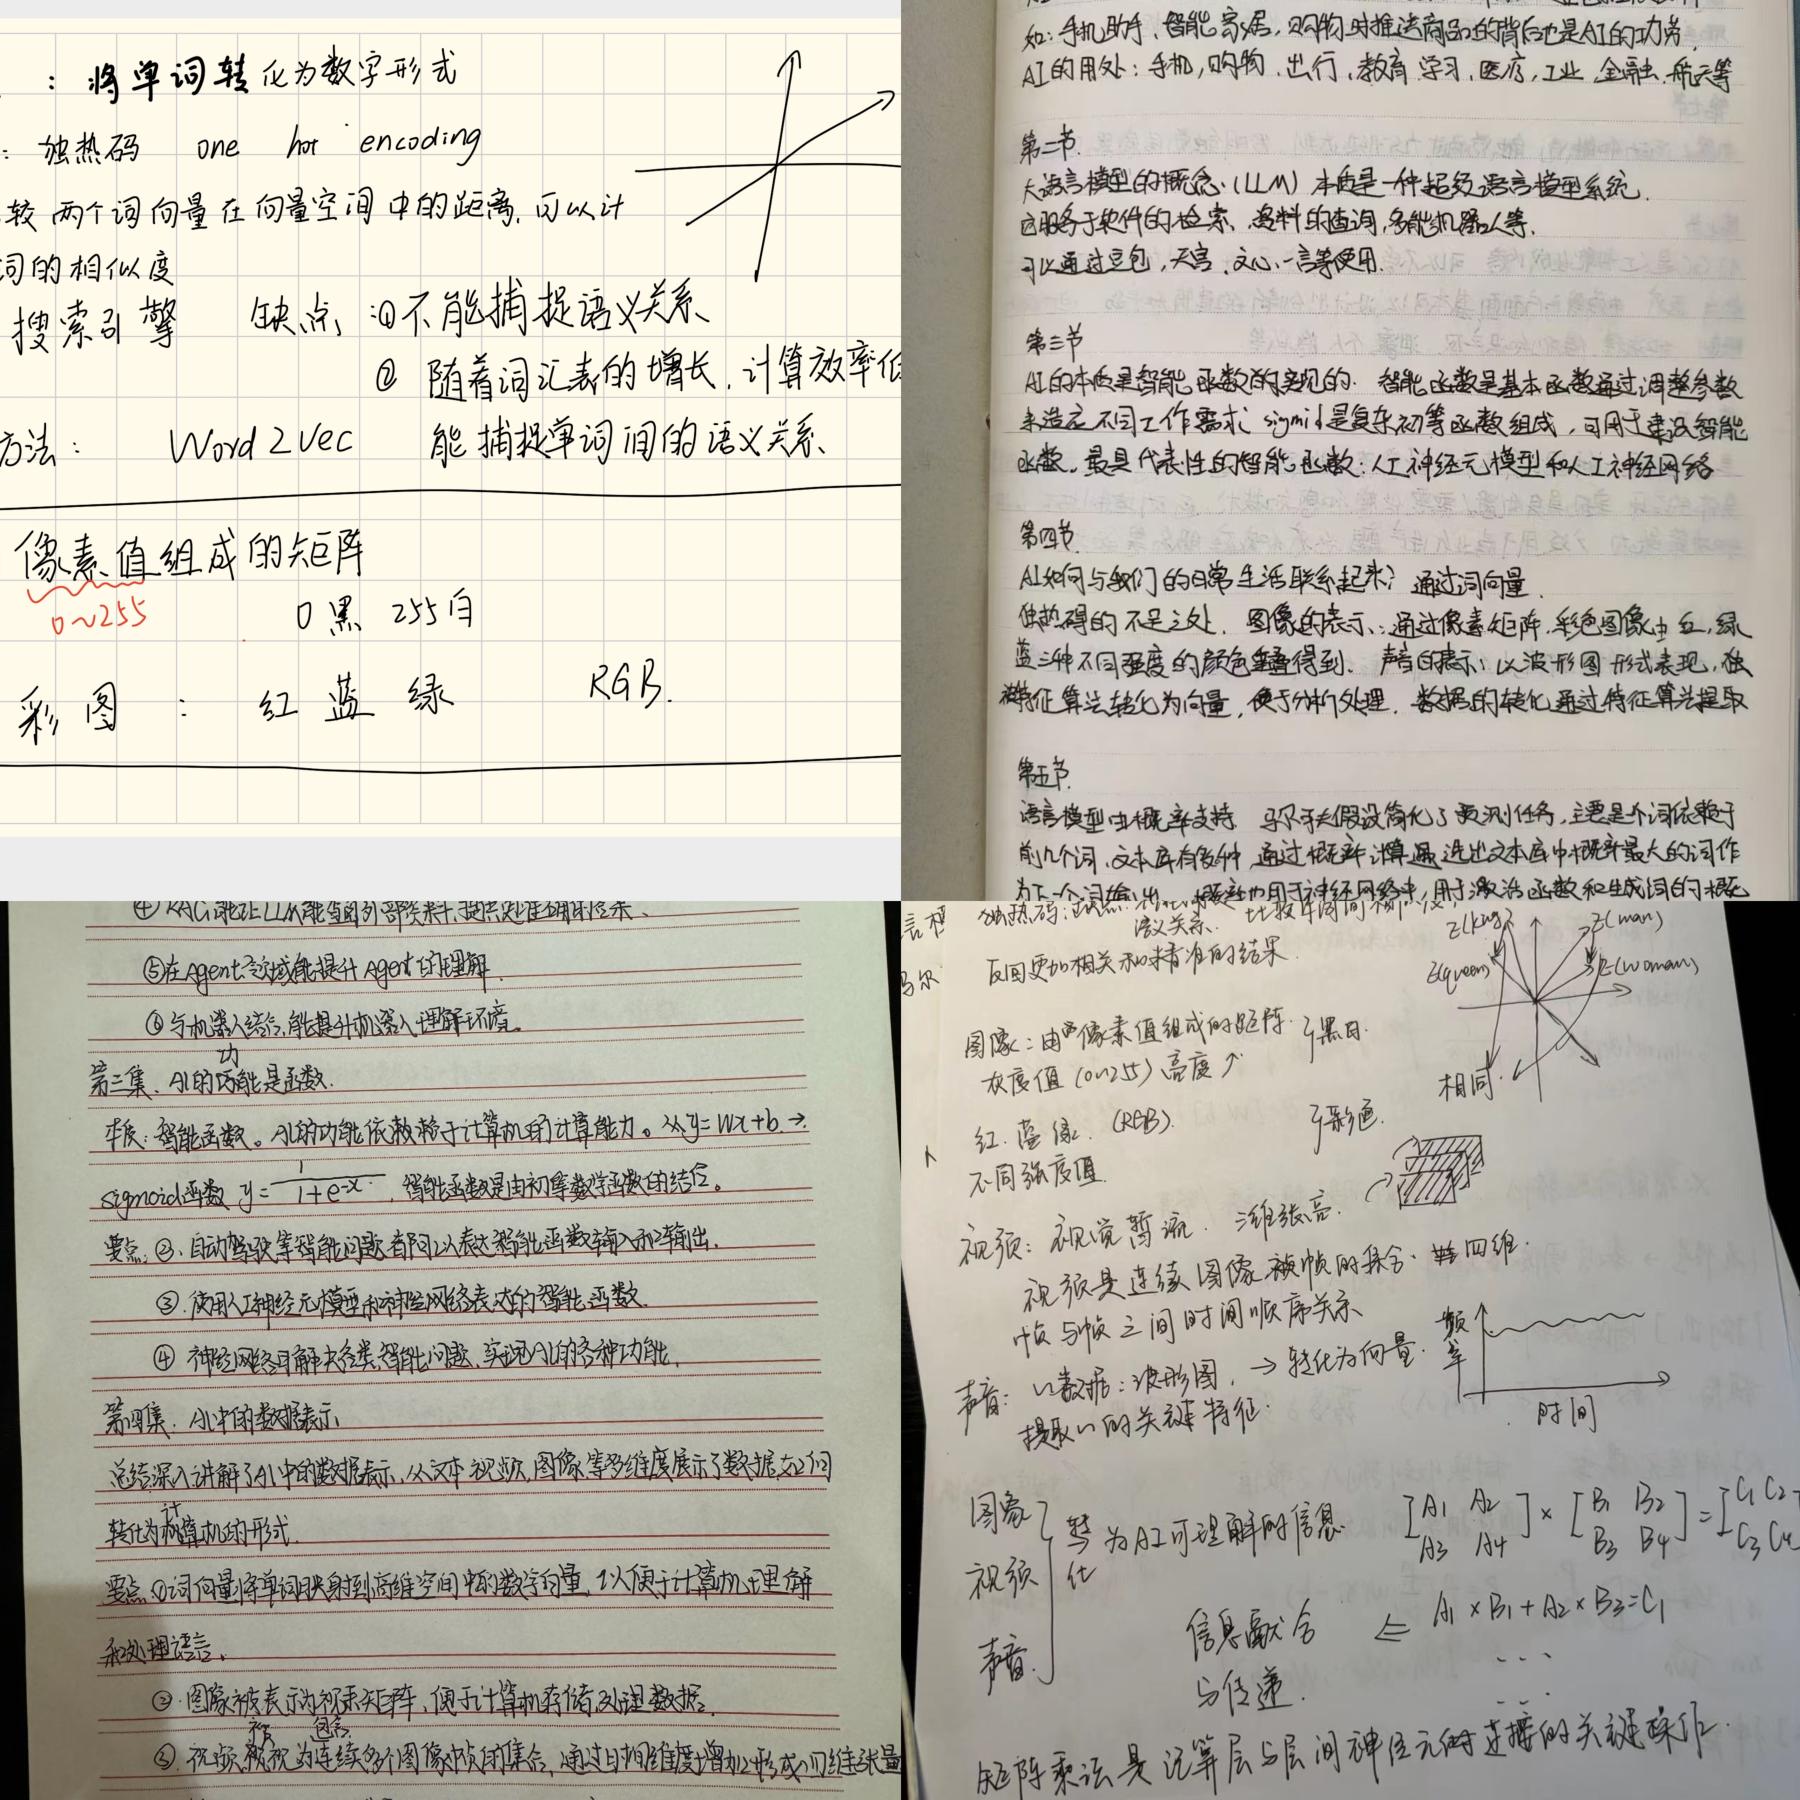 ：将单词转化为数字形式
：独热码 one hot encoding
较两个词向量在向量空间中的距离,可以计
词的相似度
搜索引擎 缺点：①不能捕捉语义关系
② 随着词汇表的增长,计算效率低
方法： Word2Vec 能捕捉单词间的语义关系
像素值组成的矩阵
0~255 0黑 255白
彩图 ： 红 蓝 绿 RGB.
如：手机助手、智能家居,购物时推送商品的背后也是AI的功劳,
AI的用处：手机,购物,出行,教育,学习,医疗,工业,金融,航天等
第二节.
大语言模型的概念.(LLM)本质是一种超级语言模型系统.
服务于软件的检索,资料的查询,多能机器人等.
可以通过豆包,天宫,文心一言等使用.
第三节
AI的本质是智能函数的实现的. 智能函数是基本函数通过调整参数
来适应不同工作需求 sigmid是复杂初等函数组成,可用于建设智能
函数,最具代表性的智能函数：人工神经元模型和人工神经网络
第四节.
AI如何与我们的日常生活联系起来? 通过词向量.
独热码的不足之处. 图像的表示：通过像素矩阵,彩色图像由红,绿
蓝三种不同强度的颜色叠得到. 声音的表示：以波形图形式表现,
特征算法转化为向量,便于分析处理. 数据的转化通过特征算法提取
第五节.
语言模型由概率支持 马尔可夫假设简化了预测任务,主要是个词依赖于
前几个词,文本库有多种,通过概率计算,选出文本库中概率最大的词作
为下一个词输出. 概率也用于神经网络中,用于激活函数和生成词的概
④ RAG能让LLM能查阅外部资料,提供处准确的信息.
⑤在Agent领域能提升Agent的理解.
⑥与机器人结合,能提升机器人理解环境。
第三集、AI的功能是函数.
本质：智能函数。AI的功能依赖于计算机的计算能力。从y=wx+b→
sigmoid函数 y=1/(1+e^-x), 智能函数是由初等数学函数的结合。
要点：②.自动驾驶等智能问题都可以表达智能函数输入和输出.
③.使用人工神经元模型和神经网络表达的智能函数.
④ 神经网络可解决各类智能问题,实现AI的各种功能.
第四集. AI中的数据表示
总结深入讲解了AI中的数据表示,从文本 视频,图像等多维度展示了数据如何
转化为计算机的形式.
要点 ①词向量将单词映射到高维空间中的数字向量,以便于计算机理解
和处理语言.
②.图像被表示为像素矩阵,便于计算机存储及处理数据.
③.视频被视为连续多个图像帧的集合,通过时间维度增加形成四维张量
独热码：
语义关系. 比较
返回更加相关和精准的结果.
Z(king) Z(man)
Z(queen) Z(woman)
图像：由像素值组成的矩阵. 黑白.
灰度值(0~255) 亮度↑
相同
红.蓝绿.(RGB). 彩色.
不同强度值
视频：视觉暂流. 三维张亮.
视频是连续图像帧的集合. 四维.
帧与帧之间时间顺序关系
声音： 数据：波形图. →转化为向量.
提取 的关键特征.
频率
时间
图象
视频
声音
转化为AI可理解的信息
[A1 A2 A3 A4]×[B1 B2 B3 B4]=[C1 C2 C3 C4
A1×B1+A2×B3=C1
...
...
信息融合
与传递.
矩阵乘法是计算层与层间神经元的连接的关键操作.